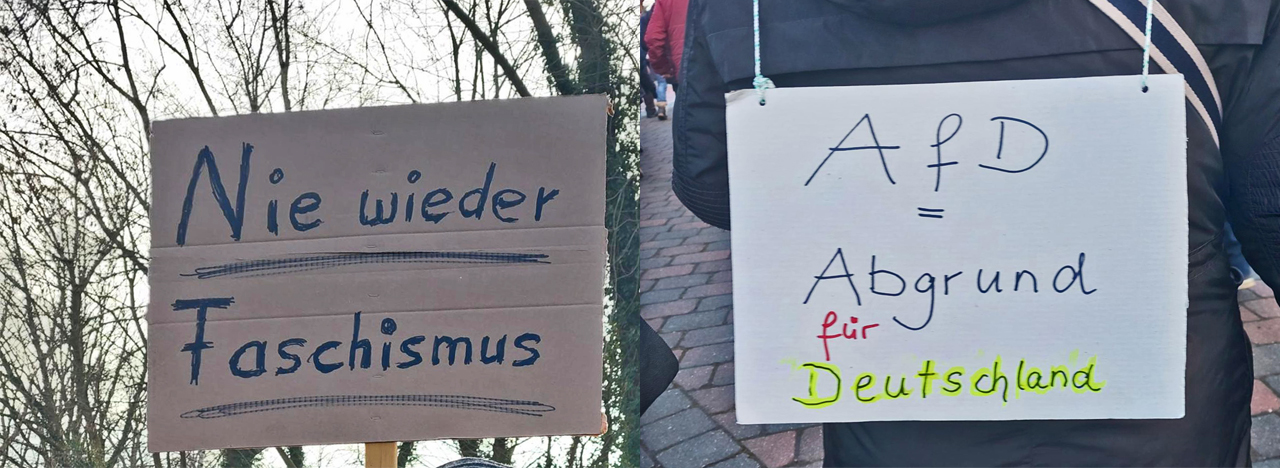 Nie wieder
Faschismus
AfD
=
Abgrund
für
Deutschland